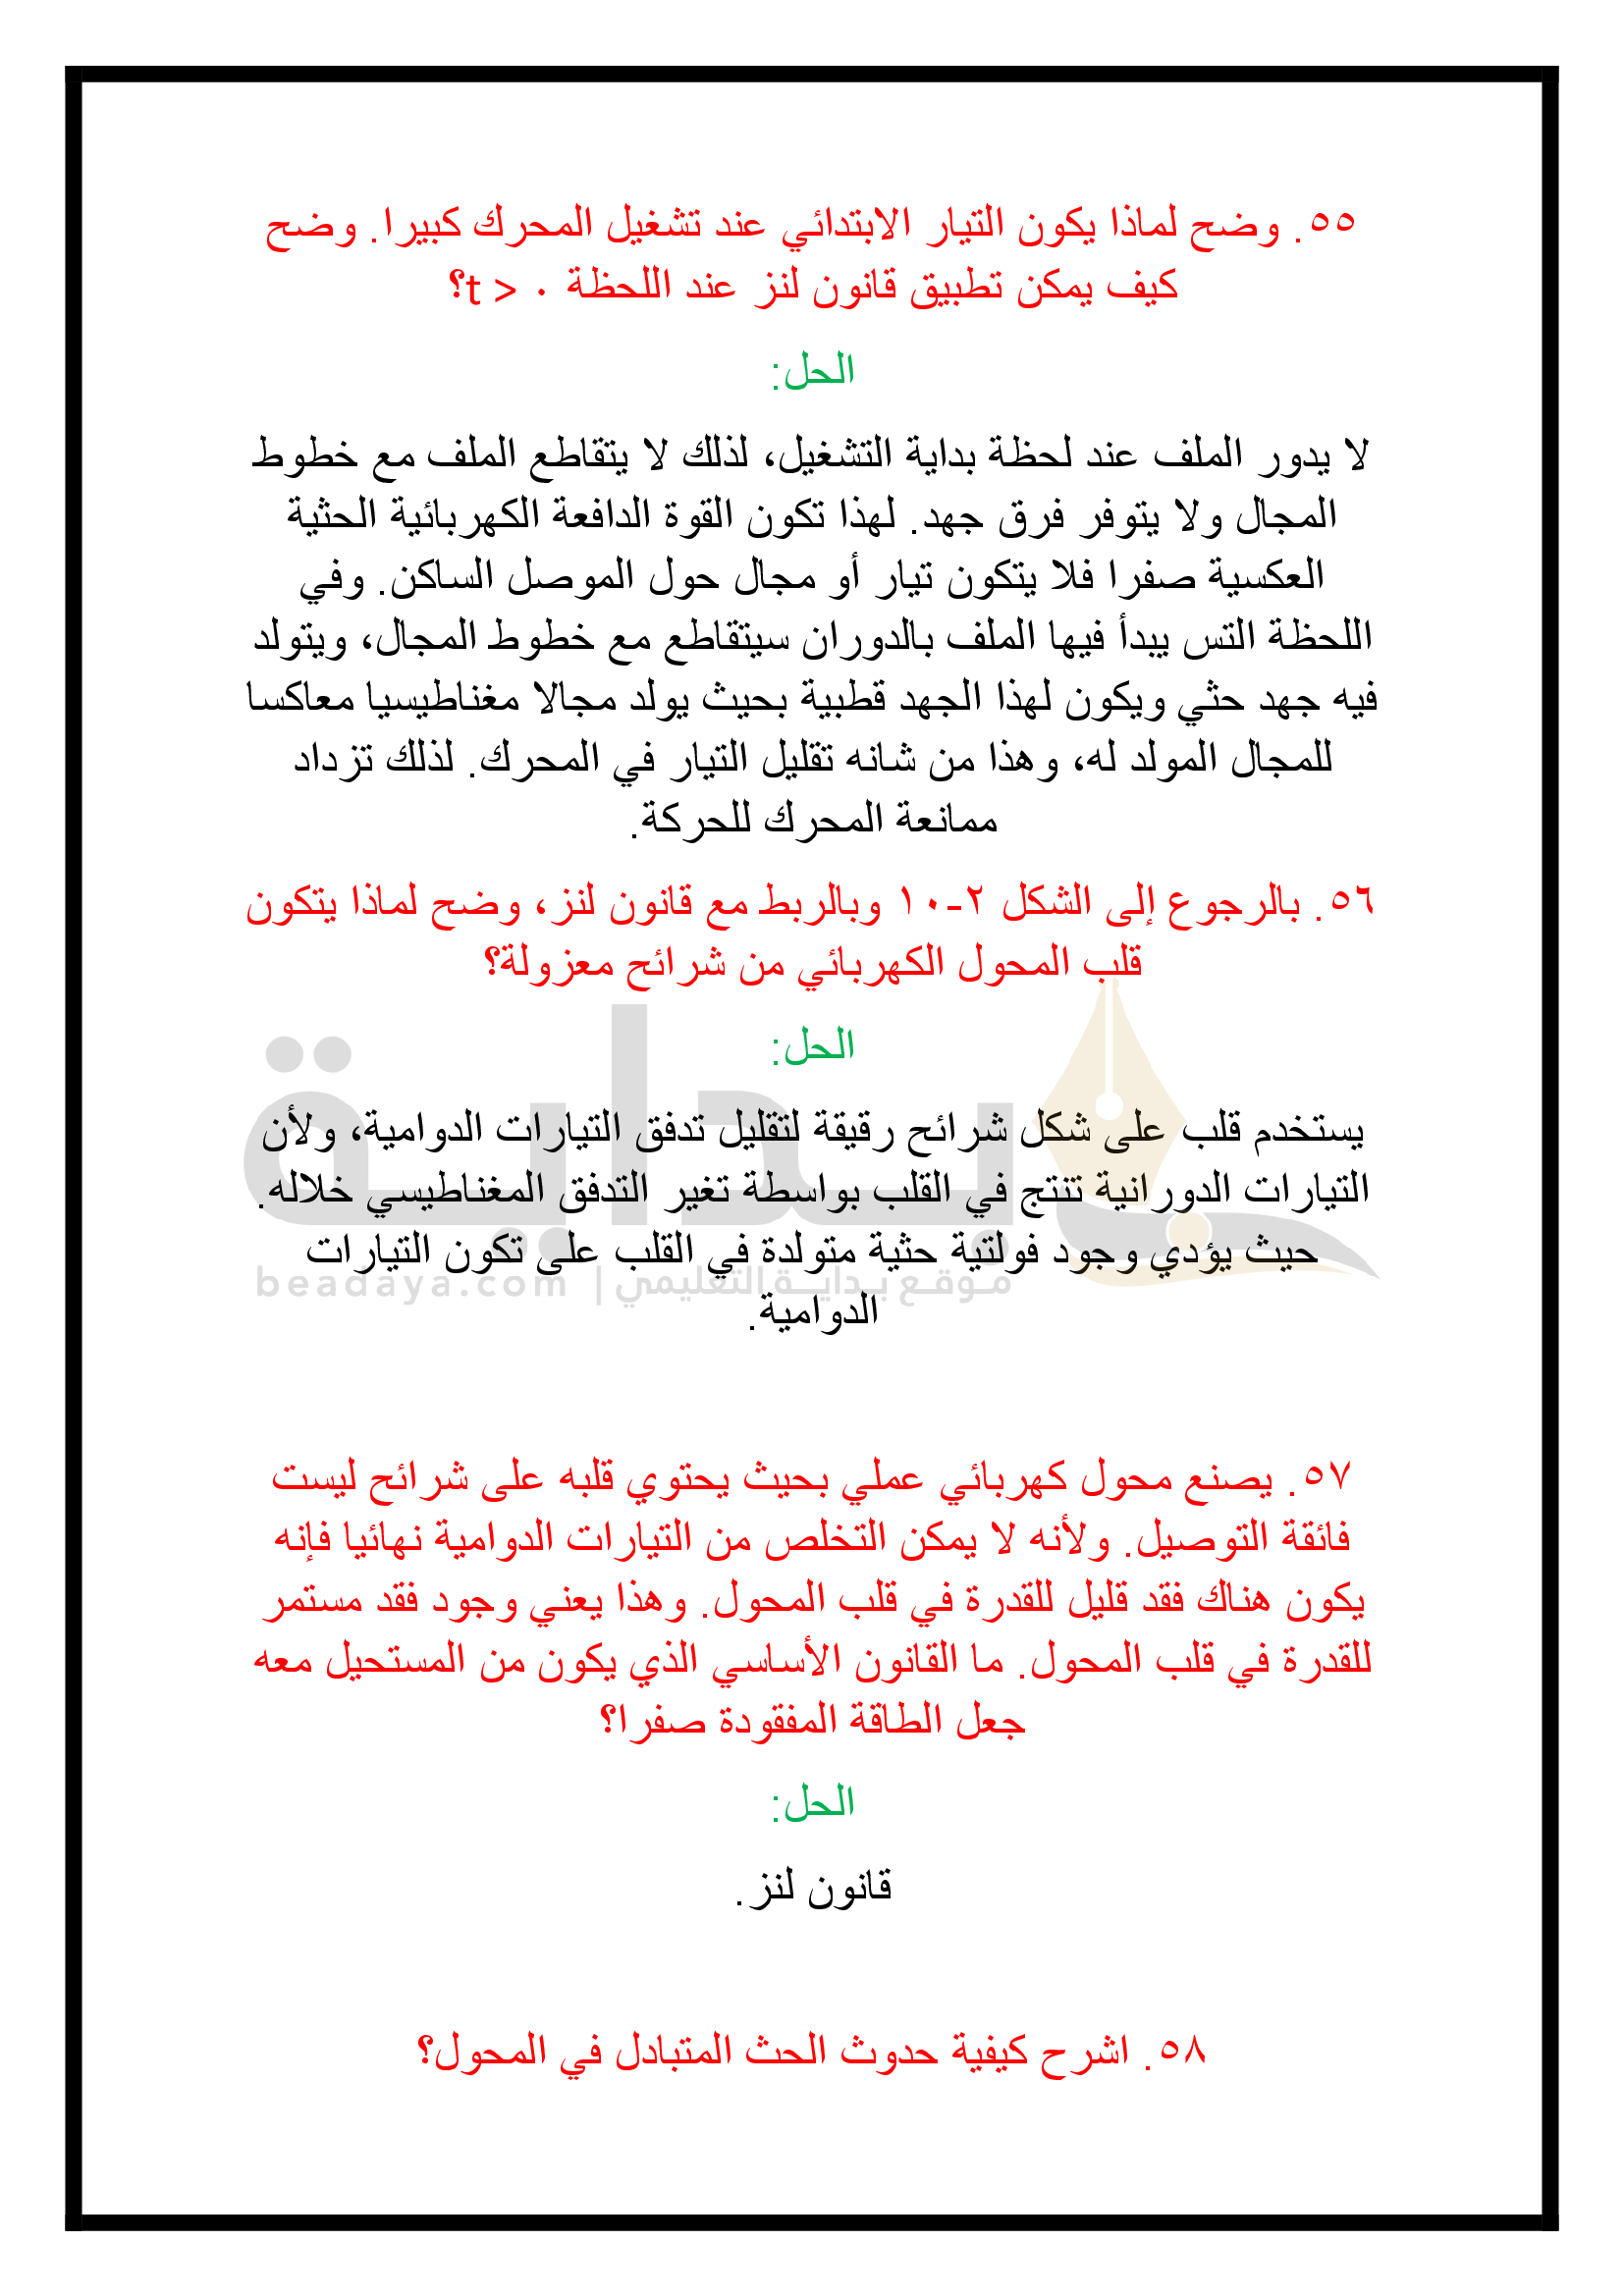 ٥٥. وضح لماذا يكون التيار الابتدائي عند تشغيل المحرك كبيرا. وضح
كيف يمكن تطبيق قانون لنز عند اللحظة t > ٠؟
الحل:
لا يدور الملف عند لحظة بداية التشغيل، لذلك لا يتقاطع الملف مع خطوط
المجال ولا يتوفر فرق جهد. لهذا تكون القوة الدافعة الكهربائية الحثية
العكسية صفرا فلا يتكون تيار أو مجال حول الموصل الساكن. وفي
اللحظة التس يبدأ فيها الملف بالدوران سيتقاطع مع خطوط المجال، ويتولد
فيه جهد حثي ويكون لهذا الجهد قطبية بحيث يولد مجالا مغناطيسيا معاكسا
للمجال المولد له، وهذا من شانه تقليل التيار في المحرك. لذلك تزداد
ممانعة المحرك للحركة.
٥٦. بالرجوع إلى الشكل ٢-١٠ وبالربط مع قانون لنز، وضح لماذا يتكون
قلب المحول الكهربائي من شرائح معزولة؟
الحل:
يستخدم قلب على شكل شرائح رقيقة لتقليل تدفق التيارات الدوامية، ولأن
التيارات الدورانية تنتج في القلب بواسطة تغير التدفق المغناطيسي خلاله.
حيث يؤدي وجود فولتية حثية متولدة في القلب على تكون التيارات
الدوامية.
بداية
موقع بداية التعليمي | beadaya.com
٥٧. يصنع محول كهربائي عملي بحيث يحتوي قلبه على شرائح ليست
فائقة التوصيل. ولأنه لا يمكن التخلص من التيارات الدوامية نهائيا فإنه
يكون هناك فقد قليل للقدرة في قلب المحول. وهذا يعني وجود فقد مستمر
للقدرة في قلب المحول. ما القانون الأساسي الذي يكون من المستحيل معه
جعل الطاقة المفقودة صفرا؟
الحل:
قانون لنز.
٥٨. اشرح كيفية حدوث الحث المتبادل في المحول؟